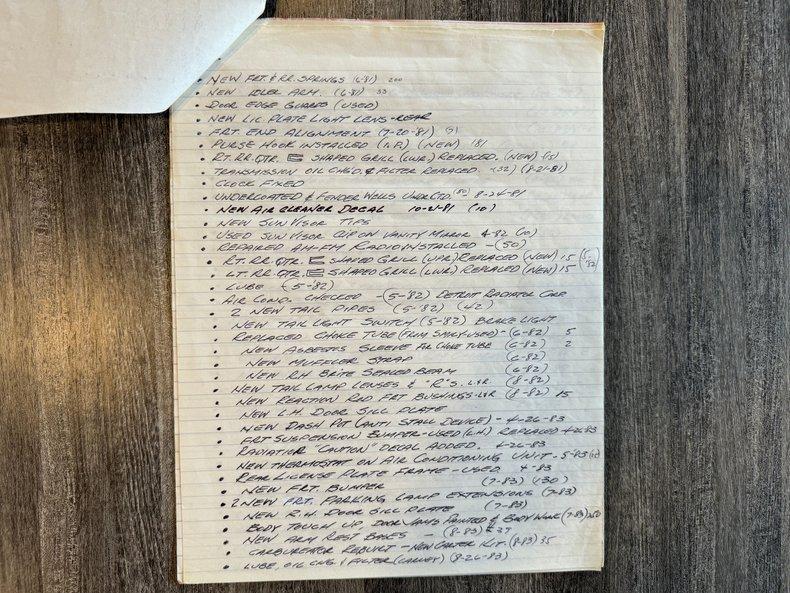 • NEW FRT. & RR. SPRINGS (6-81) 200
• NEW IDLER ARM. (6-81) 33
• DOOR EDGE GUARDS (USED)
• NEW LIC. PLATE LIGHT LENS-REAR
• FRT END ALIGNMENT (7-20-81)
• PURSE HOOK INSTALLED (NEW)
• RT. RR. QTR. E SHAPED GRILL (LWR) REPLACED. (NEW)
• TRANSMISSION OIL CHG'D & FILTER REPLACED. (32) (8-21-81)
• CLOCK FIXED
• UNDERCOATED & FENDER WELLS UNDERCTD. (50) 8-24-81
• NEW AIR CLEANER DECAL 10-21-81 (10)
• NEW SUN VISOR TIPS
• USED SUN VISOR CLIP ON VANITY MIRROR 4-82 (10)
• REPAIRED AM-FM RADIO INSTALLED - (50)
• RT. RR QTR. E SHAPED GRILL (UPR) REPLACED (NEW) 15 (5-82)
• LT. RR QTR. E SHAPED GRILL (LWR) REPLACED (NEW) 15
• LUBE (5-82)
• AIR COND. CHECKED - (5-82) DETROIT RADIATOR CORE
• 2 NEW TAIL PIPES (5-82) (42)
• NEW TAIL LIGHT SWITCH (5-82) BRAKE LIGHT
• REPLACED CHOKE TUBE (FROM USED) - (6-82) 5
• NEW ASBESTOS SLEEVE FOR CHOKE TUBE (6-82) 2
• NEW MUFFLER STRAP (6-82)
• NEW R.H. BRITE SEALED BEAM (6-82)
• NEW TAIL LAMP LENSES & "R'S. L&R. (8-82)
• NEW REACTION ROD FRT BUSHINGS-L&R (8-82) 15
• NEW L.H. DOOR SILL PLATE
• NEW DASH POT (ANTI STALL DEVICE) - 4-26-83
• FRT SUSPENSION BUMPER-USED (L.H.) REPLACED 4-26-83
• RADIATOR "CAUTION" DECAL ADDED. 4-26-83
• NEW THERMOSTAT ON AIR CONDITIONING UNIT - 5-83
• REAR LICENSE PLATE FRAME - USED 4-83
• NEW FRT. BUMPER (7-83) (130)
• 2 NEW FRT. PARKING LAMP EXTENSIONS (7-83)
• NEW R.H. DOOR SILL PLATE (7-83)
• BODY TOUCH UP, DOOR JAMBS PAINTED & BODY WORK (7-83) 250
• NEW ARM REST BASES - (8-83) 37
• CARBURETOR REBUILT - NEW CARTER KIT. (8-83) 35
• LUBE, OIL CHG. & FILTER (8-26-83)